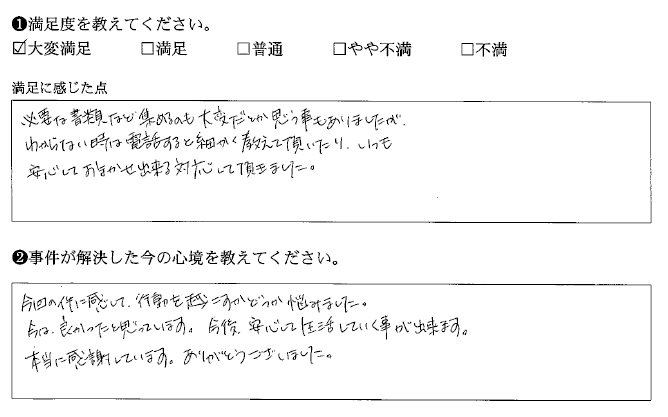 ❶満足度を教えてください。
☑大変満足 □満足 □普通 □やや不満 □不満
満足に感じた点
必要な書類など集めるのも大変だとか思う事もありましたが、
わからない時は電話すると細かく教えて頂いたり、いつも
安心しておまかせ出来る対応して頂きました。
❷事件が解決した今の心境を教えてください。
今回の件に感して、行動を起こすかどうか悩みました。
今は、良かったと思っています。今後、安心して生活していく事が出来ます。
本当に感謝しています。ありがとうございました。